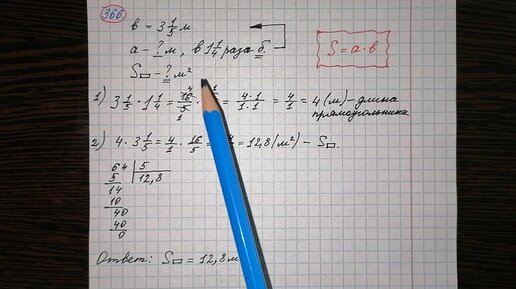 366.
в = 3 1/5 м
a - ? м, в 1 1/4 раза б.
S▭ - ? м²
S = a · в
1) 3 1/5 · 1 1/4 = 16/5 · = 4·1/1·1 = 4/1 = 4 (м) - длина
прямоугольника
2) 4 · 3 1/5 = 4/1 · 16/5 = = 12,8 (м²) - S▭.
64 | 5
5 | 12,8
14
10
40
40
0
Ответ: S▭ = 12,8 м